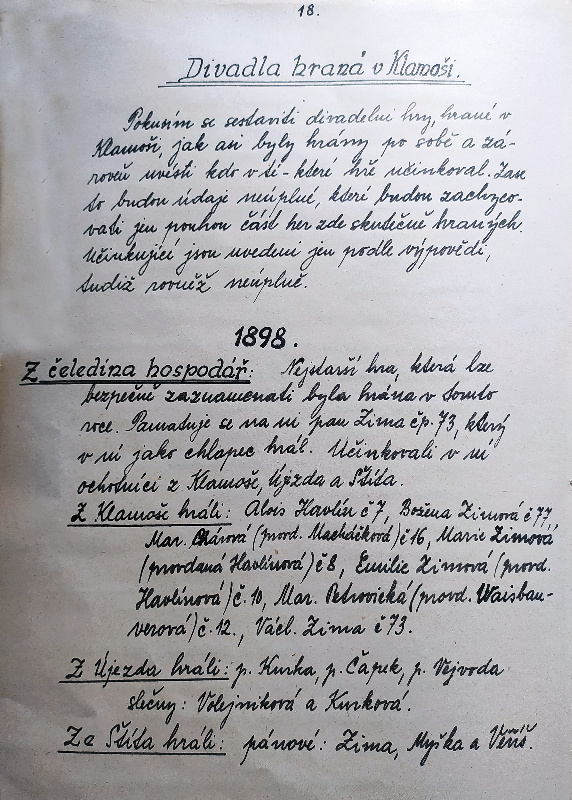 18.
Divadla hraná v Klamoši.
Pokusím se sestaviti divadelní hry, hrané v
Klamoši, jak asi byly hrány po sobě a zá-
roveň uvésti kdo v té-které hře učinkoval. Jsou
to budou údaje neúplné, které budou zachyco-
vati jen pouhou část her zde skutečně hraných.
Učinkující jsou uvedeni jen podle výpovědí,
tudiž rovněž neúplně.
1898.
Z čeledína hospodář: Nejstarší hra, která lze
bezpečně zaznamenati byla hrána v tomto
roce. Pamatuje se na ni pan Zima čp. 73, který
v ní jako chlapec hrál. Učinkovali v ní
ochotníci z Klamoše, Újezda a Štíta.
Z Klamoše hráli: Alois Havlín č 7, Božena Zimová č 77,
Mar. Chárová (provd. Macháčková) č 16, Marie Zimová,
(provdaná Havlínová) č 8, Emilie Zimová (provd.
Havlínová) č. 10, Mar. Petrovická (provd. Waisbau-
verová) č. 12., Václ. Zima č 73.
Z Újezda hráli: p. Kurka, p. Čapek, p. Vejvoda
slečny: Volejníková a Kurková.
Ze Štíta hráli: pánové: Zima, Myška a Věříš.